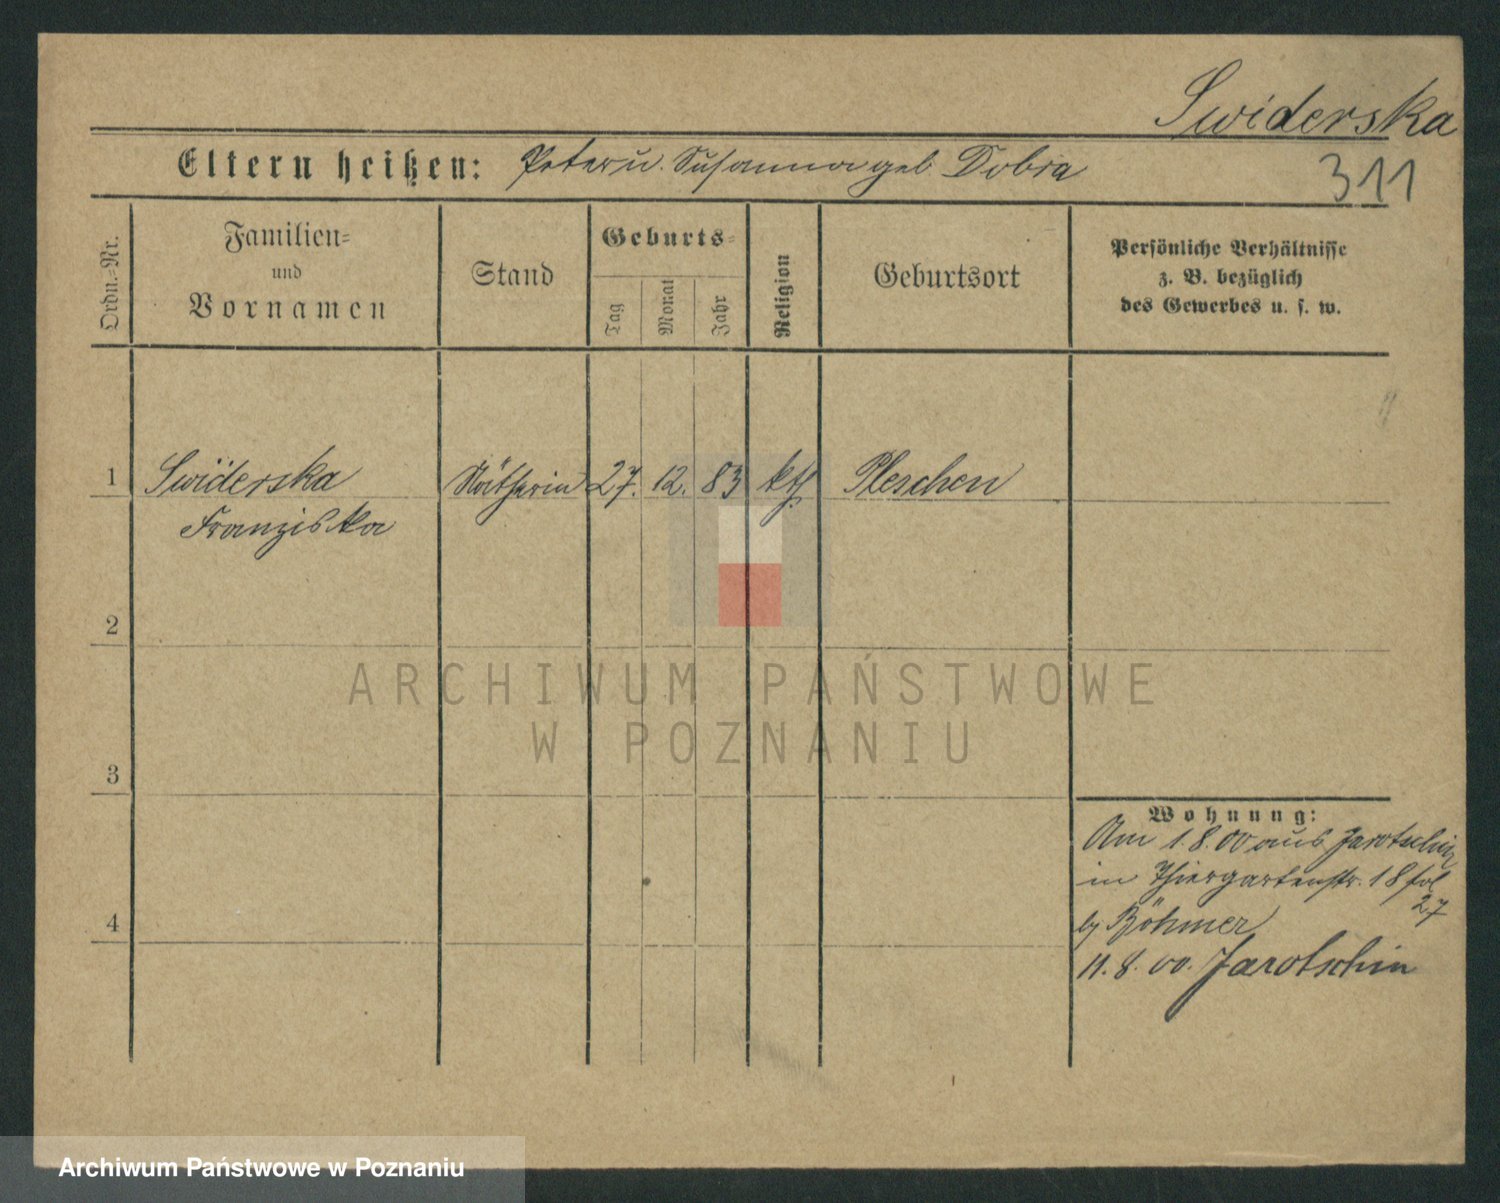 Swiderska
Eltern heißen: Peter u. Susanna geb. Dobra
311
Ordn.-Nr.
Familien-
und
Vornamen
Stand
Geburts-
Tag
Monat
Jahr
Religion
Geburtsort
Persönliche Verhältnisse
z. B. bezüglich
des Gewerbes u. s. w.
1 Swiderska Nätherin 27. 12. 83 kth. Pleschen
Franziska
2
ARCHIWUM PAŃSTWOWE
W POZNANIU
3
Wohnung:
Am 1.8.00 aus Jarotschin
in Thiergartenstr. 18 fol
27
4
by Böhmer
11.8.00. Jarotschin
Archiwum Państwowe w Poznaniu